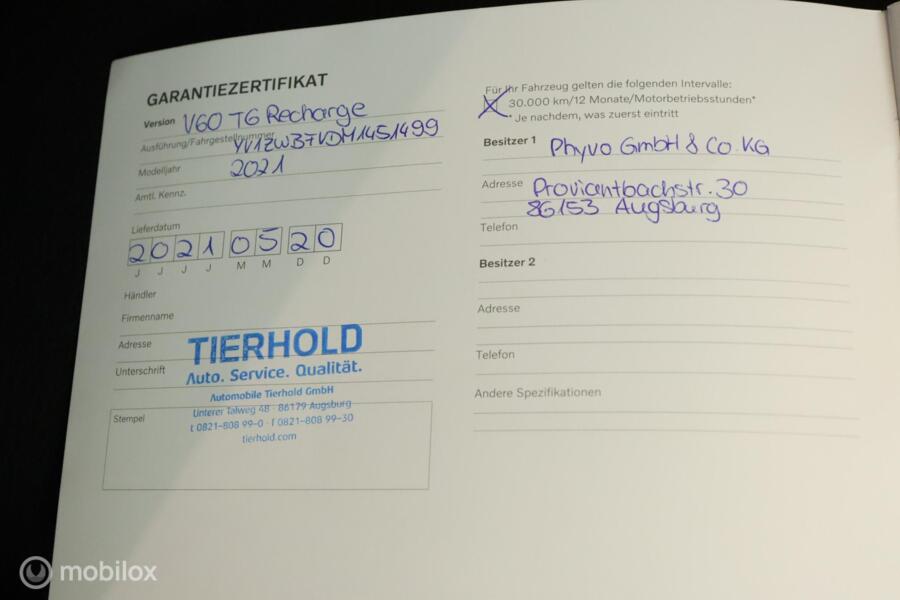 GARANTIEZERTIFIKAT
Version V60 T6 Recharge
Ausführung/Fahrgestellnummer YV1ZWBTVDM1451499
Modelljahr 2021
Amtl. Kennz.
Lieferdatum
2021 05 20
J J J J M M D D
Händler
Firmenname
Adresse
Unterschrift
Stempel
TIERHOLD
Auto. Service. Qualität.
Automobile Tierhold GmbH
Unterer Talweg 48 · 86179 Augsburg
t 0821-808 99-0 · f 0821-808 99-30
tierhold.com
Für Ihr Fahrzeug gelten die folgenden Intervalle:
X 30.000 km/12 Monate/Motorbetriebsstunden*
* Je nachdem, was zuerst eintritt
Besitzer 1 Phyvo GmbH & Co. KG
Adresse Proviantbachstr. 30
86153 Augsburg
Telefon
Besitzer 2
Adresse
Telefon
Andere Spezifikationen
mobilox